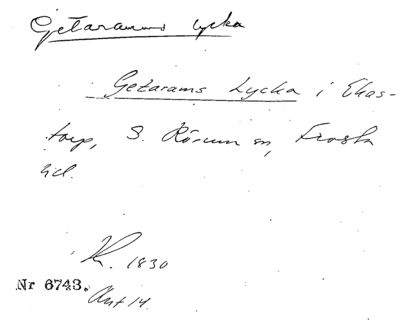 Getarams lycka
Getarams Lycka i Ekas-
torp, S. Rörum sn, Frosta
hd.
Kr. 1830
Nr 6743.
Akt 14.